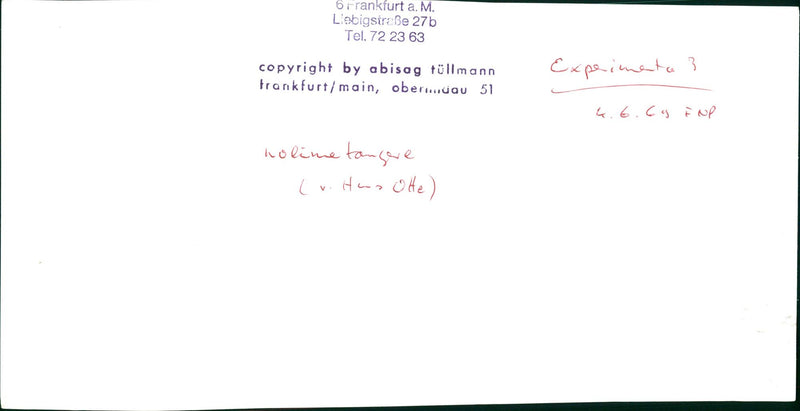 6 Frankfurt a. M.
Liebigstraße 27b
Tel. 72 23 63
copyright by abisag tüllmann
frankfurt/main, oberlindau 51
Experimenta 3
4. 6. 69 FNP
nolimetangere
(v. Hans Otte)